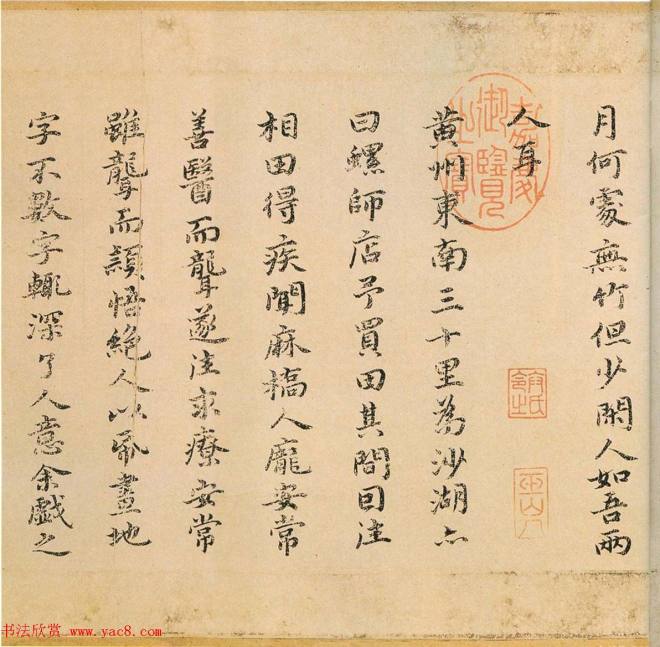 月何處無竹但少閑人如吾兩
人耳
黃州東南三十里為沙湖亦
曰螺師店予買田其間因往
相田得疾聞麻橋人龐安常
善醫而聾遂往求療安常
雖聾而穎悟絕人以紙畫地
字不數字輒深了人意余戲之
嘉慶御覽之寶
书法欣赏 www.yac8.com